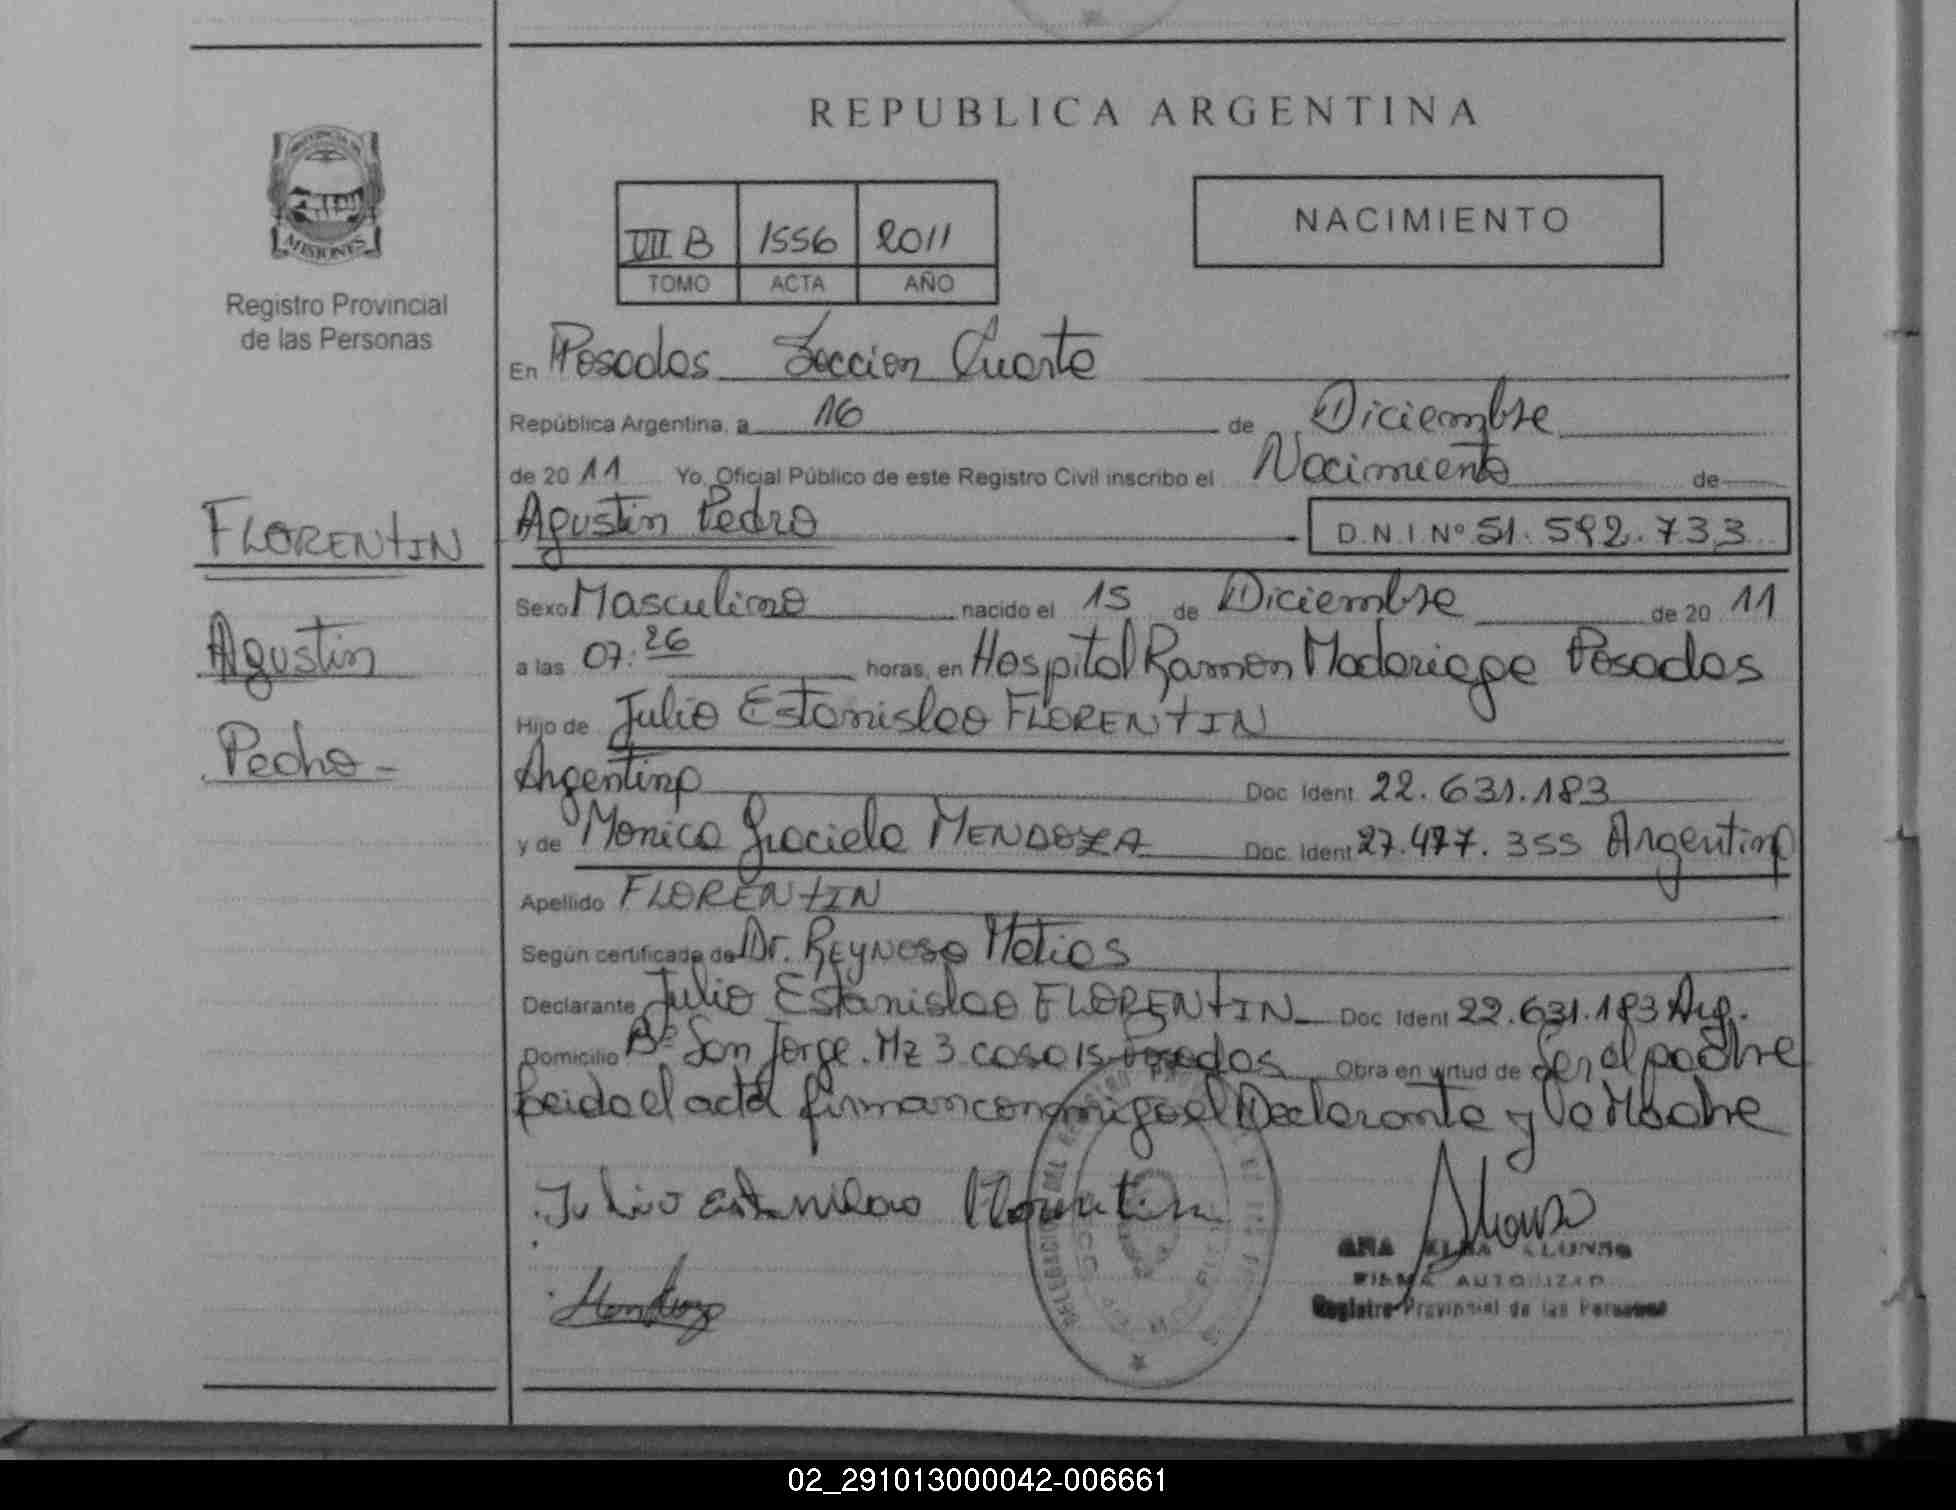 REPUBLICA ARGENTINA
MISIONES
Registro Provincial
de las Personas
VII B 1556 2011
TOMO ACTA AÑO
NACIMIENTO
En Posadas Seccion Cuarta
República Argentina, a 16 de Diciembre
de 2011 Yo, Oficial Público de este Registro Civil inscribo el Nacimiento de
FLORENTIN
Agustin
Pedro -
Agustin Pedro D.N.I Nº 51.592.733
Sexo Masculino nacido el 15 de Diciembre de 2011
a las 07:26 horas, en Hospital Ramon Madariaga Posadas
Hijo de Julio Estanislao FLORENTIN
Argentina Doc Ident 22.631.183
y de Monica Graciela MENDOZA Doc. Ident 27.477.355 Argentina
Apellido FLORENTIN
Según certificado de Dr. REYNOSO Matias
Declarante Julio Estanislao FLORENTIN Doc Ident 22.631.183 Arg.
Domicilio Bº San Jorge. Mz 3 casa 15 Posadas Obra en virtud de Ser el padre
Leida el acta firman conmigo el Declarante y la Madre
Julio Estanislao Florentin
Mendoza
Alonso
ANA ELBA ALONSO
FIRMA AUTORIZAD
Registro Provincial de las Personas
02_291013000042-006661